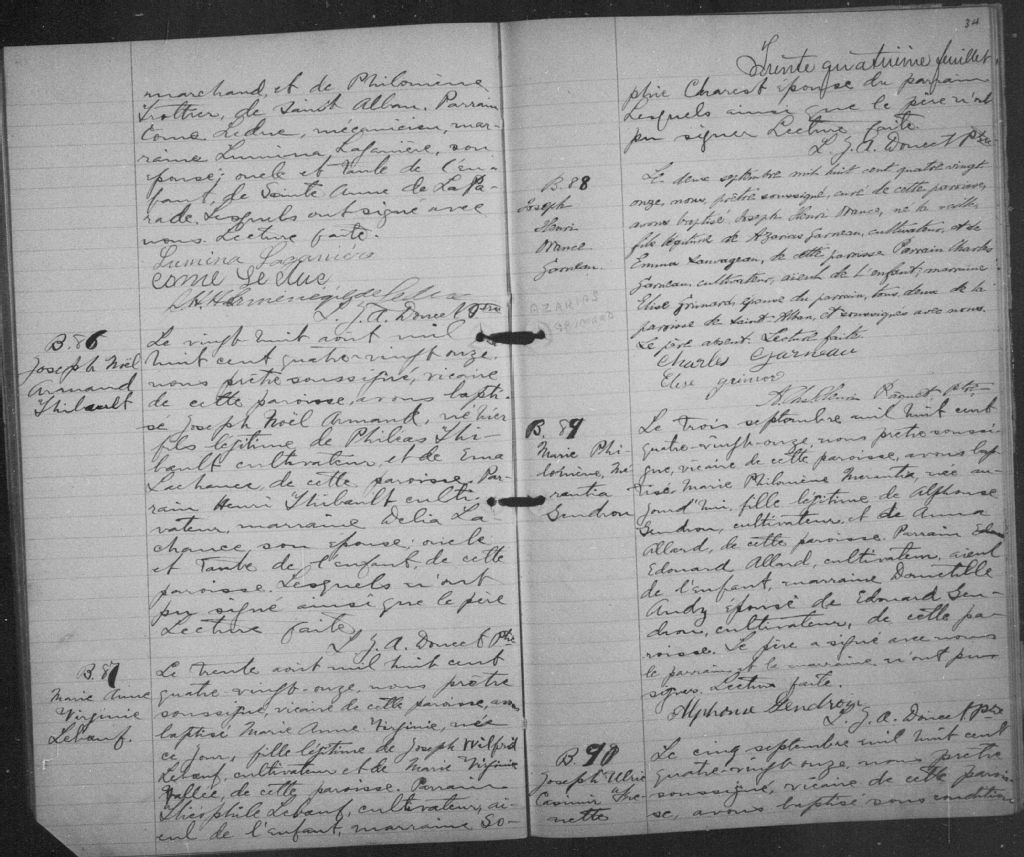 marchand, et de Philomène
Trottier, de Saint Alban. Parrain
Come Leduc, mécanicien, mar-
raine Lumina Laganière, son
épouse; oncle et tante de l'en-
fant, de Sainte Anne de La Pé-
rade. Lesquels ont signé avec
nous. Lecture faite.
Lumina Laganière
Come Leduc
L. J. A. Doucet Ptre
B. 86
Joseph Noël
Armand
Thibault
Le vingt huit août mil
huit cent quatre-vingt onze
nous prêtre soussigné, vicaire
de cette paroisse, avons bapti-
sé Joseph Noël Armand, né hier
fils légitime de Philéas Thi-
bault cultivateur, et de Ema
Lachance, de cette paroisse. Par-
rain Henri Thibault culti-
vateur marraine Delia La-
chance, son épouse; oncle
et tante de l'enfant, de cette
paroisse. Lesquels n'ont
pu signé ainsi que le père
Lecture faite
L. J. A. Doucet Ptre
B. 87
Marie Anne
Virginie
Lebœuf.
Le trente août mil huit cent
quatre-vingt-onze, nous prêtre
soussigné, vicaire de cette paroisse, avons
baptisé Marie Anne Virginie, née
ce jour, fille légitime de Joseph Wilfrid
Lebœuf, cultivateur et de Marie Virginie
Vallée, de cette paroisse. Parrain
Théophile Lebœuf, cultivateur, ai-
eul de l'enfant, marraine So-
34
Trente quatrième feuillet
phie Charest épouse du parrain
Lesquels ainsi que le père n'ont
pu signer Lecture faite
L. J. A. Doucet Ptre
B. 88
Joseph
Henri
Garneau.
AZARIAS
GRIMARD
Le deux septembre mil huit cent quatre vingt
onze, nous, prêtre soussigné, curé de cette paroisse,
avons baptisé Joseph Henri né la veille
fils légitime de Azarias Garneau, cultivateur, et de
Emma Sauvageau, de cette paroisse Parrain Charles
Garneau, cultivateur, aïeul de l'enfant; marraine
Elise Grimard, épouse du parrain, tous deux de la
paroisse de Saint-Alban, et soussignés avec nous.
Le père absent. Lecture faite.
Charles Garneau
Elise grimard
Paquet, ptre
B. 89
Marie Phi-
lomène, Mé-
rantia
Gendron
Le trois septembre mil huit cent
quatre-vingt-onze, nous prêtre soussi-
gné, vicaire de cette paroisse, avons bap-
tisé, Marie Philomène Merantia, née au-
jourd'hui, fille légitime de Alphonse
Gendron, cultivateur, et de Anna
Allard, de cette paroisse. Parrain
Edouard Allard, cultivateur, aïeul
de l'enfant, marraine Domitille
Andy épouse de Edouard Gen-
dron, cultivateur, de cette pa-
roisse. Le père a signé avec nous
le parrain et la marraine n'ont pu
signer. Lecture faite.
Alphonse Gendron
L. J. A. Doucet Ptre
B. 90
Joseph Ulric
Casimir Fre-
nette
Le cinq septembre mil huit cent
quatre-vingt-onze, nous, prêtre
soussigné, vicaire de cette parois-
se, avons baptisé sous condition